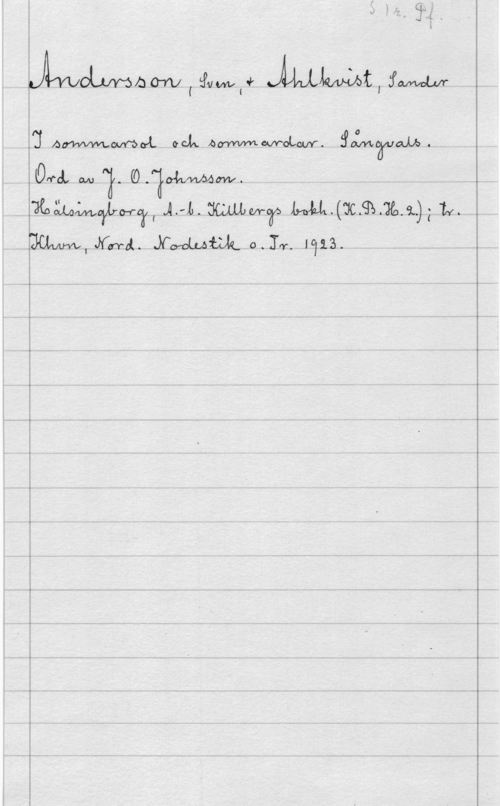 S 1 r. Pf.
Andersson, Sven, + Ahlkvist, Sander
I sommarsol och sommardar. Sångvals.
Ord av J. O. Johnsson.
Hälsingborg, A.-b. Killbergs bokh. (K.B.H.2.); tr.
Khvn, Nord. Nodestik o. Tr. 1923.